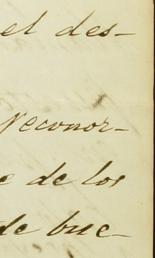 el des-
reconor-
e de los
de bue-